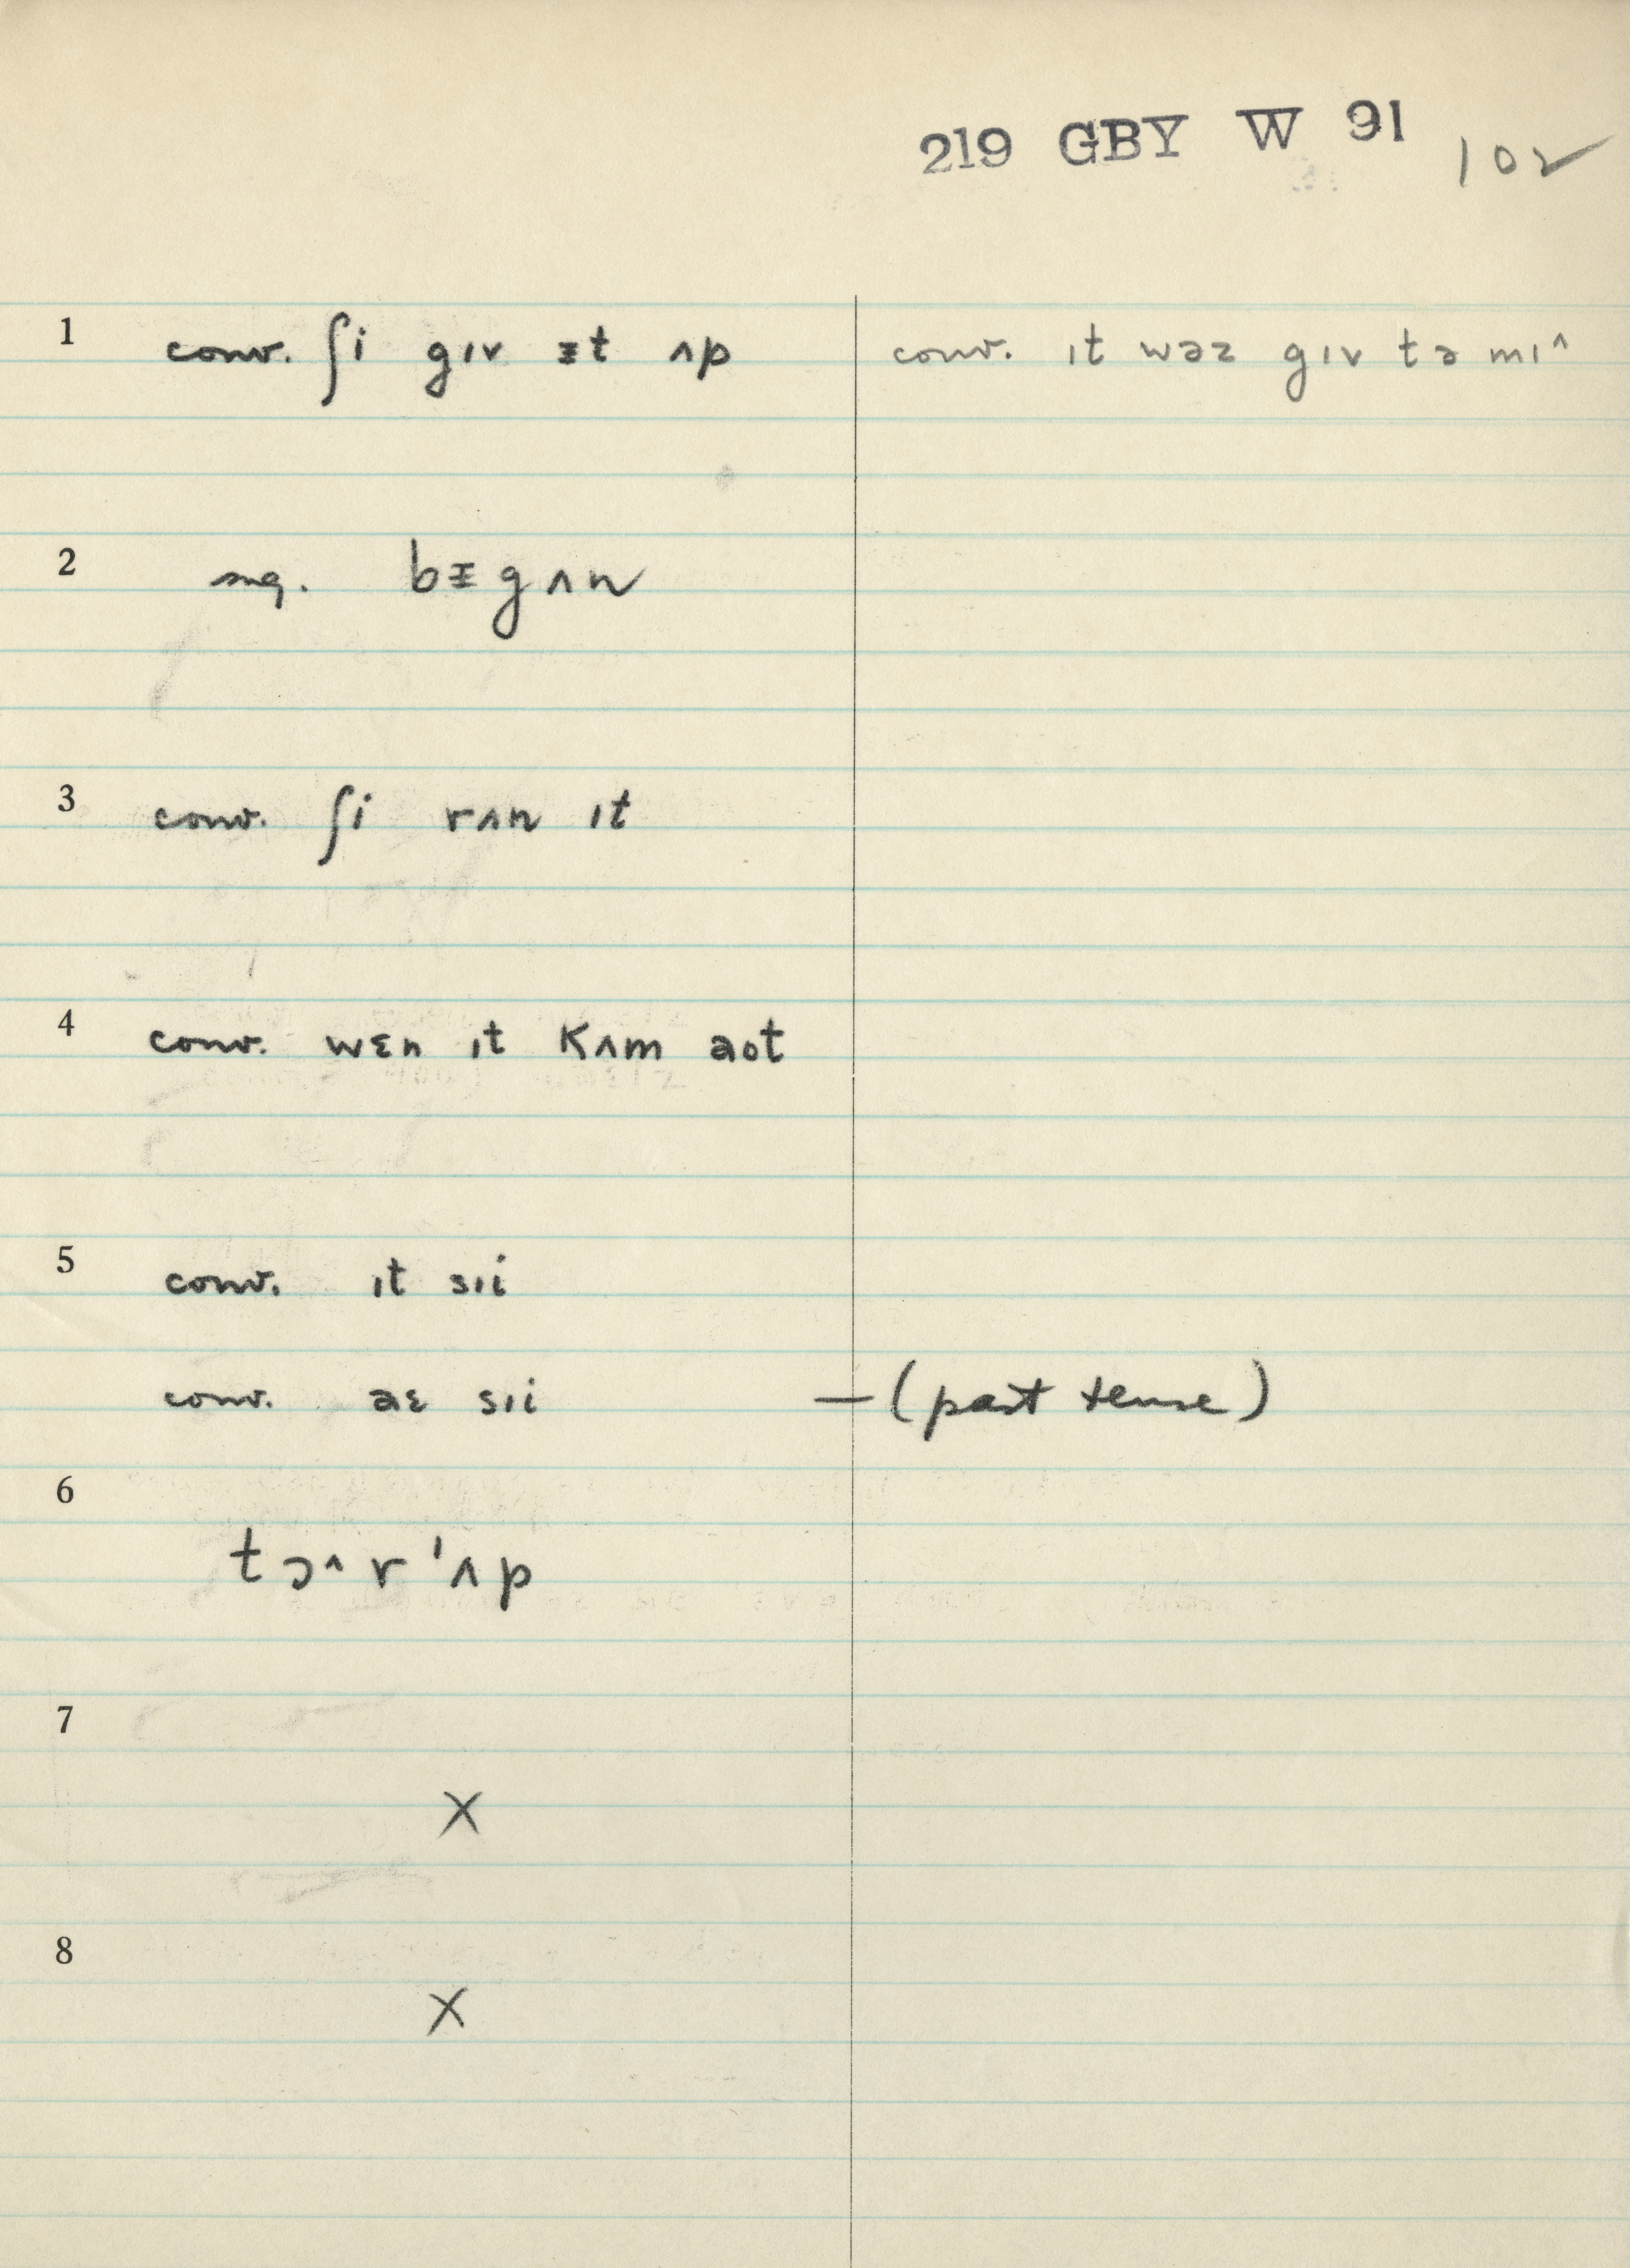 219 GBY W 91 102 ✓
1 conv. ʃi gɪv ᵻt ʌp conv. ɪt wəz gɪv tə mɪ^
2 sug. bᵻgʌn
3 conv. ʃi rʌn ɪt
4 conv. wɛn ɪt kʌm aʊt
5 conv. ɪt sɪi
conv. aɛ sɪi — (past tense)
6
tɔ^r'ʌp
7
X
8
X